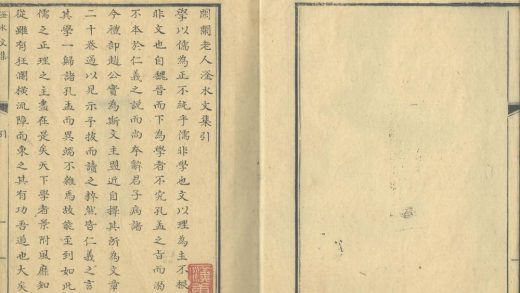 閑閑老人滏水文集引
學以儒為正不純乎儒非學也文以理為主不根
非文也自魏晉而下為學者不究孔孟之旨而溺
不本於仁義之說而尚夸辭君子病諸
今禮部趙公實為斯文主盟近自擇其所為文章
二十卷過以見示予披而讀之粹然皆仁義之言
其學一歸諸孔孟而異端不雜焉故能至到如此
儒之正理之主盡在是矣天下學者景附風靡知
從雖有狂瀾橫流障而東之其有功吾道也大矣
滏水文集
引